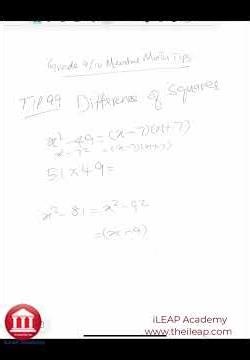 Grade 9/10 Mental Math Tips
TIP 99 Difference of Squares
x² - 49 = (x - 7)(x + 7)
x² - 7² = (x - 7)(x + 7)
51 x 49 =
x² - 81 = x² - 9²
= (x - 9)
iLEAP Academy
iLEAP Academy
www.theileap.com